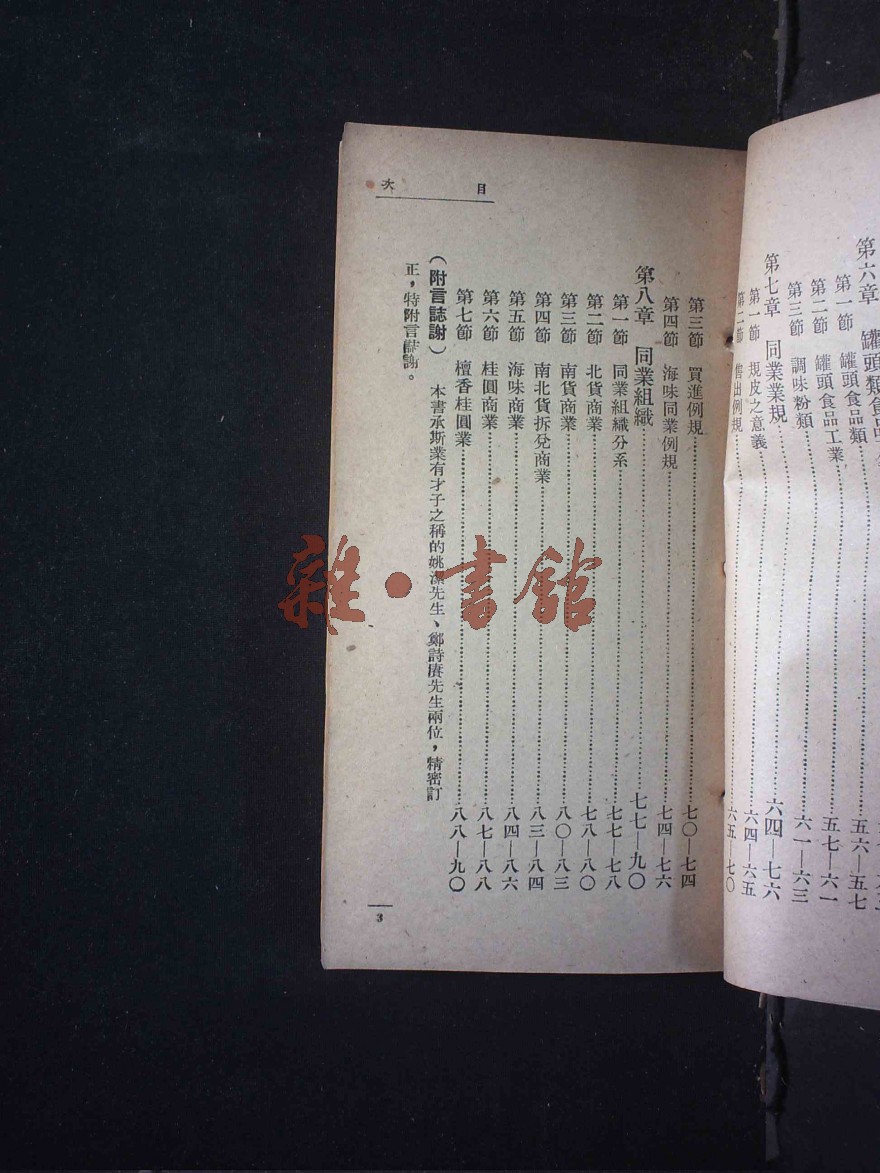 第六章　罐頭類食品
第一節　罐頭食品類……五六—五七
第二節　罐頭食品工業……五七—六一
第三節　調味粉類……六一—六三
第七章　同業業規……六四—七六
第一節　規皮之意義……六四—六五
第二節　售出例規……六五—七〇
目次
第三節　買進例規……七〇—七四
第四節　海味同業例規……七四—七六
第八章　同業組織……七七—九〇
第一節　同業組織分系……七七—七八
第二節　北貨商業……七八—八〇
第三節　南貨商業……八〇—八三
第四節　南北貨拆兌商業……八三—八四
第五節　海味商業……八四—八六
第六節　桂圓商業……八七—八八
第七節　檀香桂圓業……八八—九〇
（附言誌謝）　本書承斯業有才子之稱的姚潔先生、鄭詩賡先生兩位，精密訂
正，特附言誌謝。
3
雜·書館